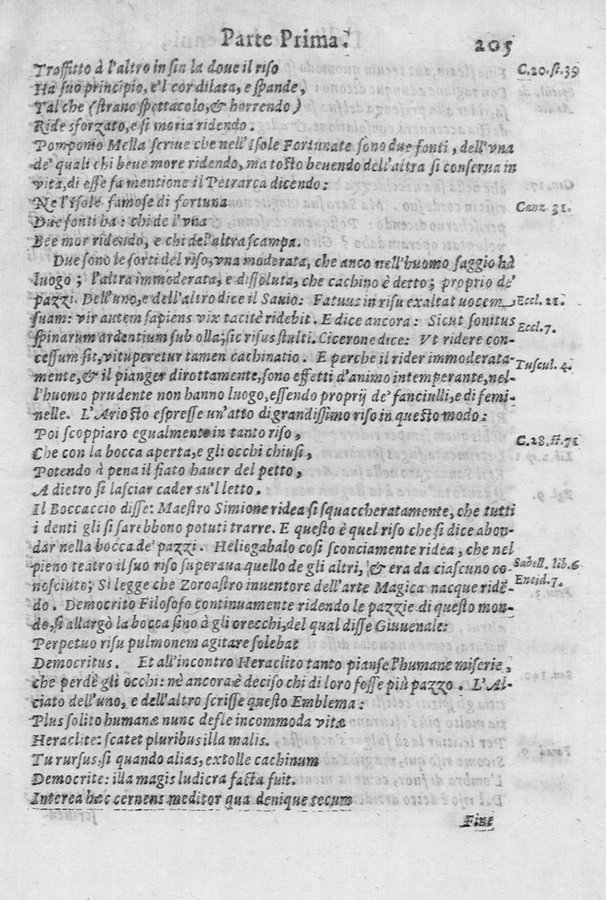 Parte Prima. 205
Traffitto à l'altro in sin la doue il riso C.20.st.39
Ha suo principio, e'l cor dilata, e spande,
Tal che (strano spettacolo, & horrendo)
Ride sforzato, e si moria ridendo.
Pomponio Mella scriue che nell'Isole Fortunate sono due fonti, dell'vna
de' quali chi beue more ridendo, ma tosto beuendo dell'altra si conserua in
vita, di esse fa mentione il Petrarca dicendo:
Ne l'isole famose di fortuna Canz. 31.
Due fonti ha: chi de l'vna
Bee mor ridendo, e chi del'altra scampa.
Due sono le sorti del riso, vna moderata, che anco nell'huomo saggio hà
luogo; l'altra immoderata, e dissoluta, che cachino è detto; proprio de'
pazzi. Dell'uno, e dell'altro dice il Sauio: Fatuus in risu exaltat uocem Eccl. 21.
suam: vir autem sapiens vix tacitè ridebit. E dice ancora: Sicut sonitus Eccl. 7.
spinarum ardentium sub olla; sic risus stulti. Cicerone dice: Vt ridere con-
cessum sit, vituperetur tamen cachinatio. E perche il rider immoderata- Tuscul. 4.
mente, & il pianger dirottamente, sono effetti d'animo intemperante, nel-
l'huomo prudente non hanno luogo, essendo proprij de' fanciulli, e di femi-
nelle. L'Ariosto espresse un'atto di grandissimo riso in questo modo:
Poi scoppiaro egualmente in tanto riso, C.28.st.71
Che con la bocca aperta, e gli occhi chiusi,
Potendo à pena il fiato hauer del petto,
A dietro si lasciar cader su'l letto.
Il Boccaccio disse: Maestro Simione ridea si squaccheratamente, che tutti
i denti gli si sarebbono potuti trarre. E questo è quel riso che si dice abon-
dar nella bocca de' pazzi. Heliogabalo così sconciamente ridea, che nel
pieno teatro il suo riso superaua quello de gli altri, & era da ciascuno co- Sabell. lib.6
nosciuto; Si legge che Zoroastro inuentore dell'arte Magica nacque ridē- Eneid.7.
do. Democrito Filosofo continuamente ridendo le pazzie di questo mon-
do, si allargò la bocca sino à gli orecchi, del qual disse Giuuenale:
Perpetuo risu pulmonem agitare solebat
Democritus. Et all'incontro Heraclito tanto pianse l'humane miserie,
che perdè gli occhi: nè ancora è deciso chi di loro fosse più pazzo. L'Al-
ciato dell'uno, e dell'altro scrisse questo Emblema:
Plus solito humanæ nunc defle incommoda vitæ
Heraclite: scatet pluribus illa malis.
Tu rursus, si quando alias, extolle cachinum
Democrite: illa magis ludicra facta fuit.
Interea hæc cernens meditor qua denique tecum
Fine